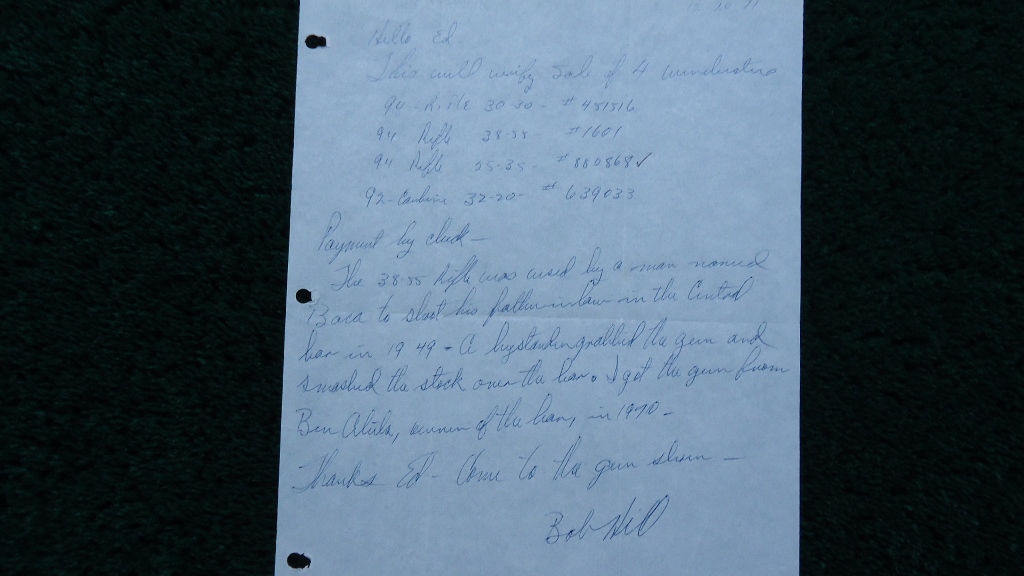 Hello Ed
This will verify sale of 4 winchesters
94 - Rifle 30-30 - # 481516
94 Rifle 38-55 #1601
94 Rifle 25-35 - # 880868 ✓
92 - Carbine 32-20 - # 639033
Payment by check -
The 38-55 Rifle was used by a man named
Baca to shoot his father in law in the Central
bar in 1949 - A bystander grabbed the gun and
smashed the stock over the bar. I got the gun from
Ben, owner of the bar, in 1970 -
Thanks Ed - Come to the gun show -
Bob Hill